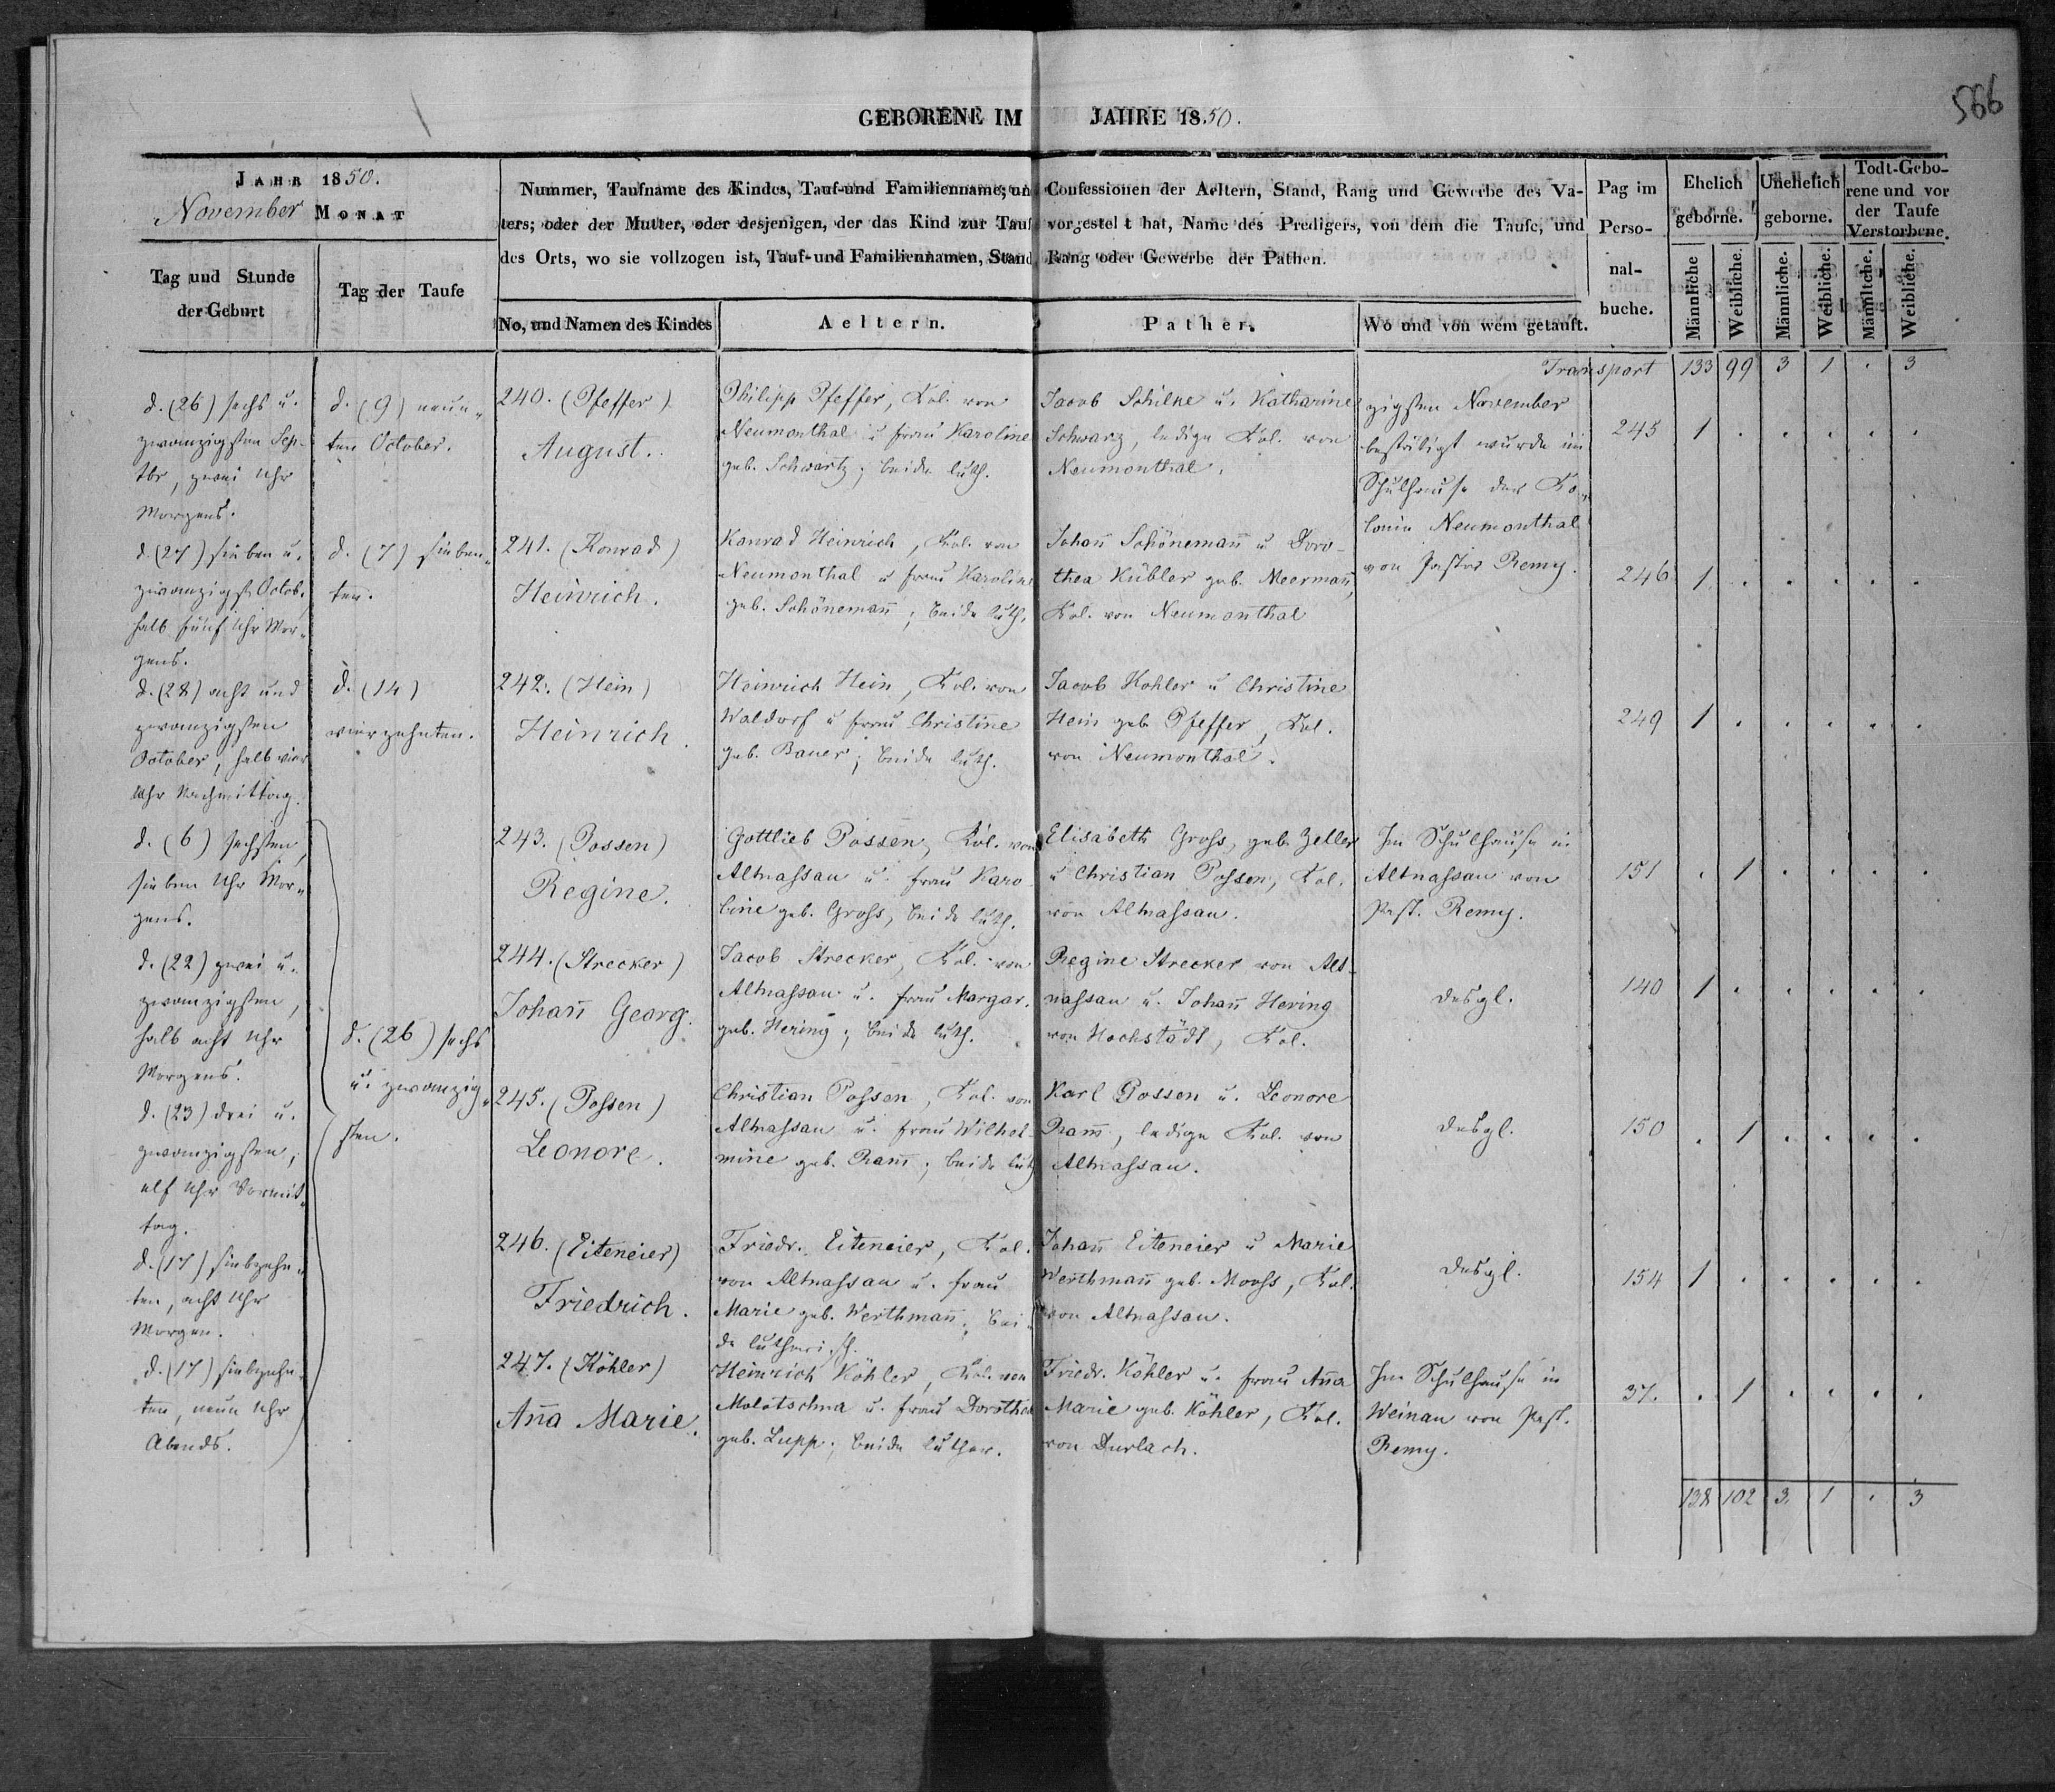 566
GEBORENE IM JAHRE 1850.
JAHR 1850.
November MONAT
Tag und Stunde
der Geburt
Tag der Taufe
Nummer, Taufname des Kindes, Tauf-und Familienname; und Confessionen der Aeltern, Stand, Rang und Gewerbe des Va-
ters; oder der Mutter, oder desjenigen, der das Kind zur Taufe vorgestel t hat, Name des Predigers, von dem die Taufe, und
des Orts, wo sie vollzogen ist, Tauf-und Familiennamen, Stand, Rang oder Gewerbe der Pathen.
No, und Namen des Kindes
Aeltern.
Pather.
Wo und von wem getauft.
Pag im
Perso-
nal-
buche.
Ehelich
geborne.
Unehelich
geborne.
Todt-Gebo-
rene und vor
der Taufe
Verstorbene.
Männliche
Weibliche.
Männliche.
Weibliche.
Männliche.
Weibliche.
Transport 133 99 3 1 . 3
d. (26) sechs u.
zwanzigsten Sep-
tbr, zwei Uhr
Morgens.
d. (9) neun-
ten October.
240. (Pfeffer)
August.
Philipp Pfeffer, Kol. von
Neumonthal u frau Karoline
geb. Schwartz; beide luth.
Jacob Schilke u. Katharine
Schwarz, ledige Kol. von
Neumonthal.
zigsten November
bestätigt wurde im
Schulhause der Ko-
lonie Neumonthal
von Pastor Remy.
245 1 . . . . .
d. (27) sieben u.
zwanzigst. Octob.
halb fünf Uhr Mor-
gens.
d. (7) sieben-
ten.
241. (Konrad)
Heinrich.
Konrad Heinrich, Kol. von
Neumonthal u frau Karoline
geb. Schönemañ; beide luth.
Johañ Schönemañ u Doro-
thea Kübler geb. Meermañ,
Kol. von Neumonthal
246 1 . . . . .
d. (28) acht und
zwanzigsten
October, halb vier
Uhr Nachmittag.
d. (14)
vierzehnten.
242. (Hein)
Heinrich.
Heinrich Hein, Kol. von
Waldorf u frau Christine
geb. Bauer; beide luth.
Jacob Kohler u Christine
Hein geb Pfeffer, Kol.
von Neumonthal.
249 1 . . . . .
d. (6) sechsten,
sieben Uhr Mor-
gens.
243. (Possen)
Regine.
Gottlieb Possen, Kol. von
Altnassau u. frau Karo-
line geb. Gross, beide luth.
Elisabeth Gross, geb. Zeller
u Christian Possen, Kol.
von Altnassau.
Im Schulhause in
Altnassau von
Past. Remy.
151 . 1 . . . .
d. (22) zwei u.
zwanzigsten,
halb acht Uhr
Morgens.
d. (26) sechs
u. zwanzig-
sten.
244. (Strecker)
Johañ Georg.
Jacob Strecker, Kol. von
Altnassau u. frau Margar.
geb. Hering; beide luth.
Regine Strecker von Alt-
nassau u. Johañ Hering
von Hochstädt, Kol.
desgl.
140 1 . . . . .
d. (23) drei u.
zwanzigsten,
elf Uhr Vormit-
tag.
245. (Possen)
Leonore.
Christian Possen, Kol. von
Altnassau u. frau Wilhel-
mine geb. Ram̃; beide luth
Karl Possen u. Leonore
Ram̃, ledige Kol. von
Altnassau.
desgl.
150 . 1 . . . .
d. (17) siebzehn-
ten, acht Uhr
Morgen.
246. (Eiteneier)
Friedrich.
Friedr. Eiteneier, Kol.
von Altnassau u. frau
Marie geb. Werthmañ; bei-
de lutherisch.
Johañ Eiteneier u Marie
Werthmañ geb. Mooss, Kol.
von Altnassau.
desgl.
154 1 . . . . .
d. (17) siebzehn-
ten, neun Uhr
Abends.
247. (Köhler)
Aña Marie.
Heinrich Köhler, Kol. von
Molotschna u. frau Dorothea
geb. Lupp; beide luther.
Friedr. Köhler u. frau Aña
Marie geb. Köhler, Kol.
von Durlach.
Im Schulhause in
Weinau von Past.
Remy.
37. . 1 . . . .
138 102 3. 1 . 3